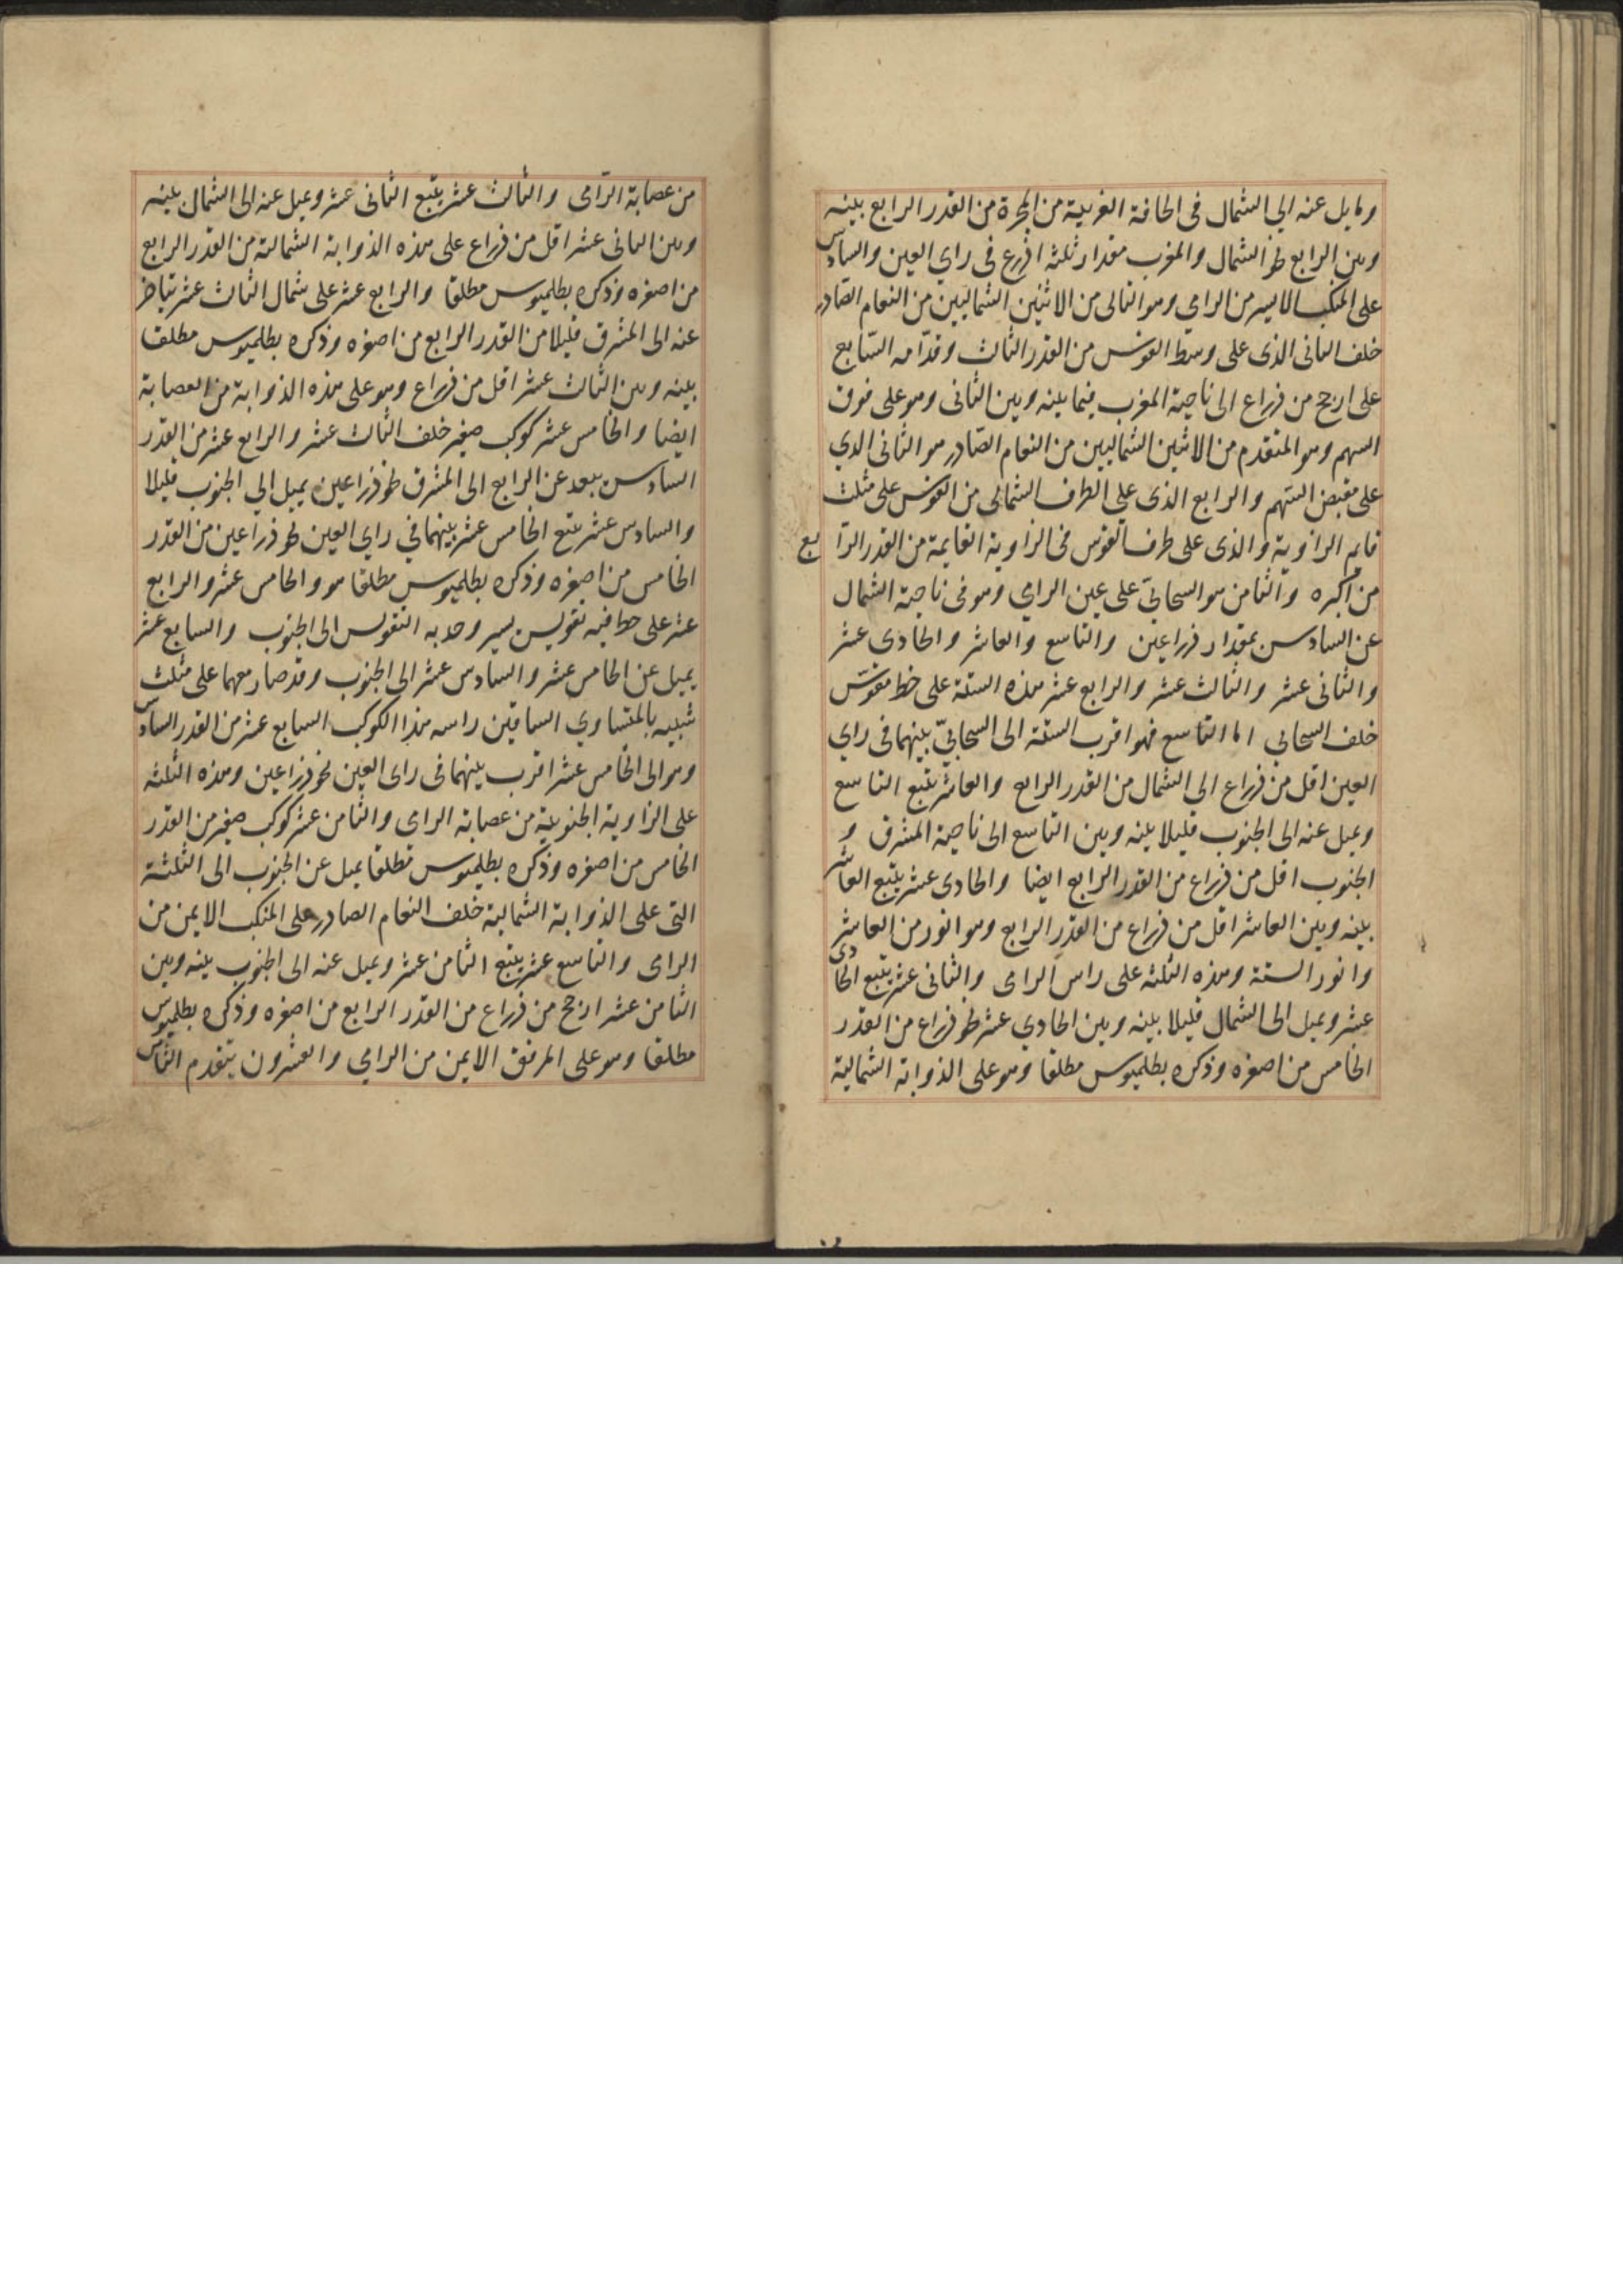 ومايل عنه الي الشمال فى الحافة الغربية من المجرة من القدر الرابع بينه
وبين الرابع نحو الشمال والمغرب مقدار ثلثه اذرع فى راي العين والسادس
على المنكب الايسر من الرامي وهو التالى من الاثنين الشماليين من النعام الصادر
خلف الثانى الذى على وسط القوس من القدر الثالث وقدامه السّابع
على ارجح من ذراع الى ناحية المغرب فيما بينه وبين الثانى وهو على فوق
السهم وهو المتقدم من الاثنين الشماليين من النعام الصّادر هو الثانى الدي
على مقبض السّهم والرابع الذى على الطرف الشمالى من القوس على مثلث
قايم الزاوية والذى على طرف القوس فى الزاوية القايمة من القدر الرّابع
من اكبره والثامن هو السحابيّ على عين الرامي وهو فى ناحية الشمال
عن السادس بمقدار ذراعين والتاسع والعاشر والحادى عشر
والثانى عشر والثالث عشر والرابع عشر هذه الستة على خط مقوّس
خلف السحابي اما التاسع فهو اقرب الستة الى السحابيّ بينهما فى راي
العين اقل من ذراع الى الشمال من القدر الرابع والعاشر يتبع التاسع
ويميل عنه الى الجنوب قليلا بينه وبين التاسع الى ناحية المشرق و
الجنوب اقل من ذراع من القدر الرابع ايضا والحادى عشر يتبع العاشر
بينه وبين العاشر اقل من ذراع من القدر الرابع وهو انور من العاشر
وانور الستة وهذه الثلثه على راس الرامى والثانى عشر يتبع الحادى
عشر ويميل الى الشمال قليلا بينه وبين الحادي عشر نحو ذراع من القدر
الخامس من اصغره وذكره بطلميوس مطلقا وهو على الذوابة الشمالية
من عصابة الرّامى والثالث عشر يتبع الثانى عشر ويميل عنه الى الشمال بينه
وبين الثانى عشر اقل من ذراع على هذه الذوابة الشمالية من القدر الرابع
من اصغره وذكره بطلميوس مطلقا والرابع عشر على شمال الثالث عشر يتاخر
عنه الى المشرق قليلا من القدر الرابع من اصغره وذكره بطلميوس مطلقا
بينه وبين الثالث عشر اقل من ذراع وهو على هذه الذوابة من العصابة
ايضا والخامس عشر كوكب صغير خلف الثالث عشر والرابع عشر من القدر
السادس يبعد عن الرابع الى المشرق نحو ذراعين يميل الي الجنوب قليلا
والسادس عشر يتبع الخامس عشر بينهما في راي العين نحو ذراعين من القدر
الخامس من اصغره وذكره بطلميوس مطلقا هو والخامس عشر والرابع
عشر على خط فيه تقويس يسير وحدبه التقويس الى الجنوب والسابع عشر
يميل عن الخامس عشر والسادس عشر الى الجنوب وقد صار معهما على مثلث
شبيه بالمتساوي الساقين راسه هذا الكوكب السابع عشر من القدر السادس
وهو الى الخامس عشر اقرب بينهما فى راى العين نحو ذراعين وهذه الثلثه
على الزاوية الجنوبية من عصابة الرامى والثامن عشر كوكب صغير من القدر
الخامس من اصغره وذكره بطلميوس مطلقا يميل عن الجنوب الى الثلثة
التى على الذوابة الشمالية خلف النعام الصادر على المنكب الايمن من
الرامى والتاسع عشر يتبع الثامن عشر ويميل عنه الى الجنوب بينه وبين
الثامن عشر ارجح من ذراع من القدر الرابع من اصغره وذكره بطلميوس
مطلقا وهو على المرفق الايمن من الرامي والعشرون يتقدم الثامن